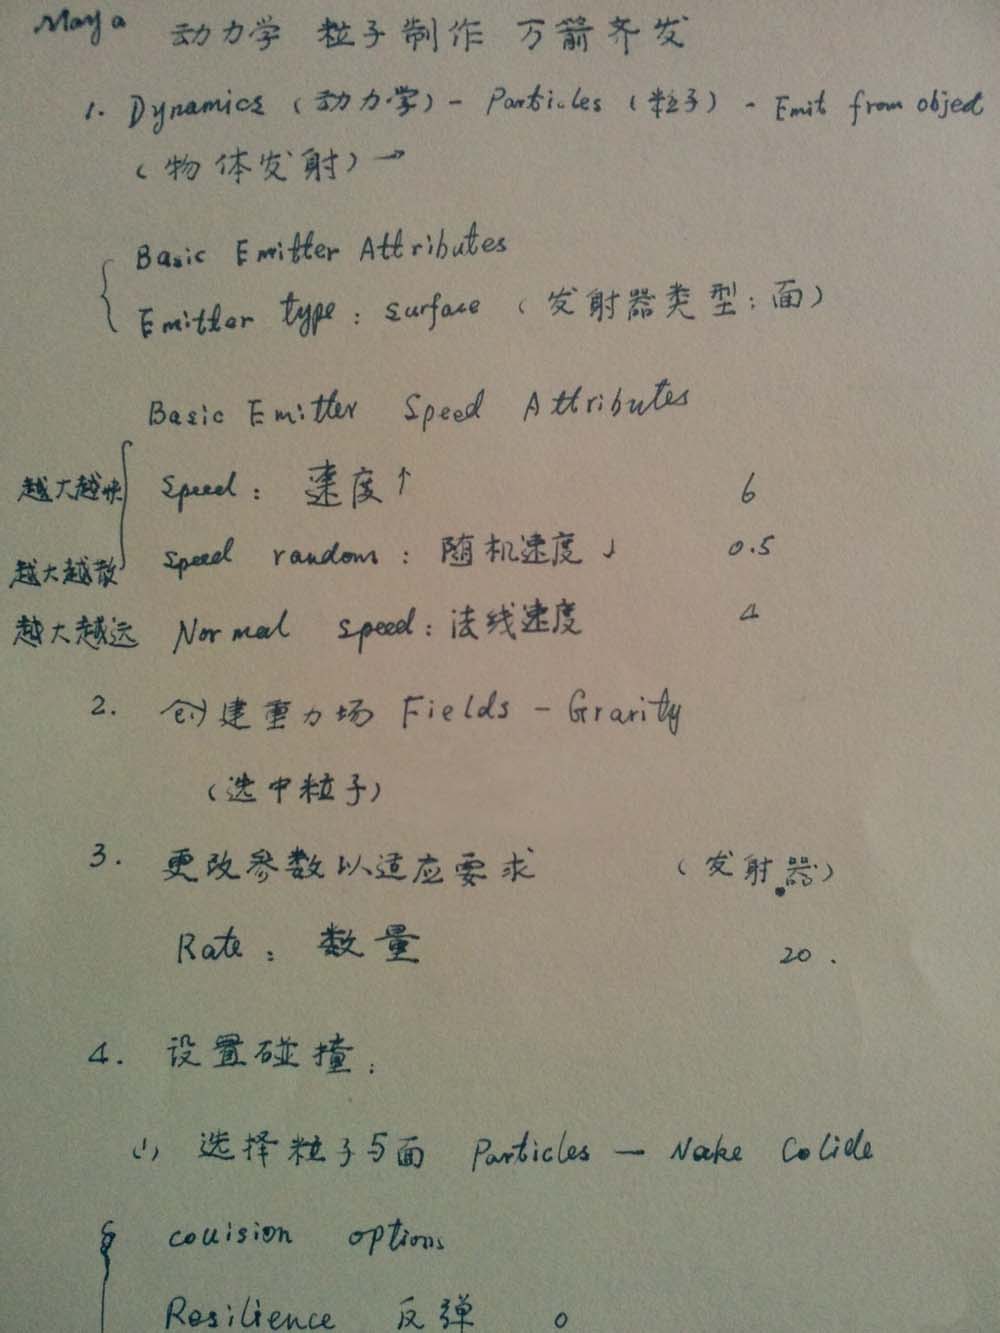 Maya 动力学 粒子制作 万箭齐发
1. Dynamics (动力学) - Particles (粒子) - Emit from object
(物体发射) →
Basic Emitter Attributes
Emitter type: surface (发射器类型:面)
Basic Emitter Speed Attributes
越大越快 Speed: 速度↑ 6
越大越散 Speed random: 随机速度↓ 0.5
越大越远 Normal speed: 法线速度 4
2. 创建重力场 Fields - Grarity
(选中粒子)
3. 更改参数以适应要求 (发射器)
Rate: 数量 20.
4. 设置碰撞:
(1) 选择粒子与面 Particles — Nake Colide
couision options
Resilience 反弹 0